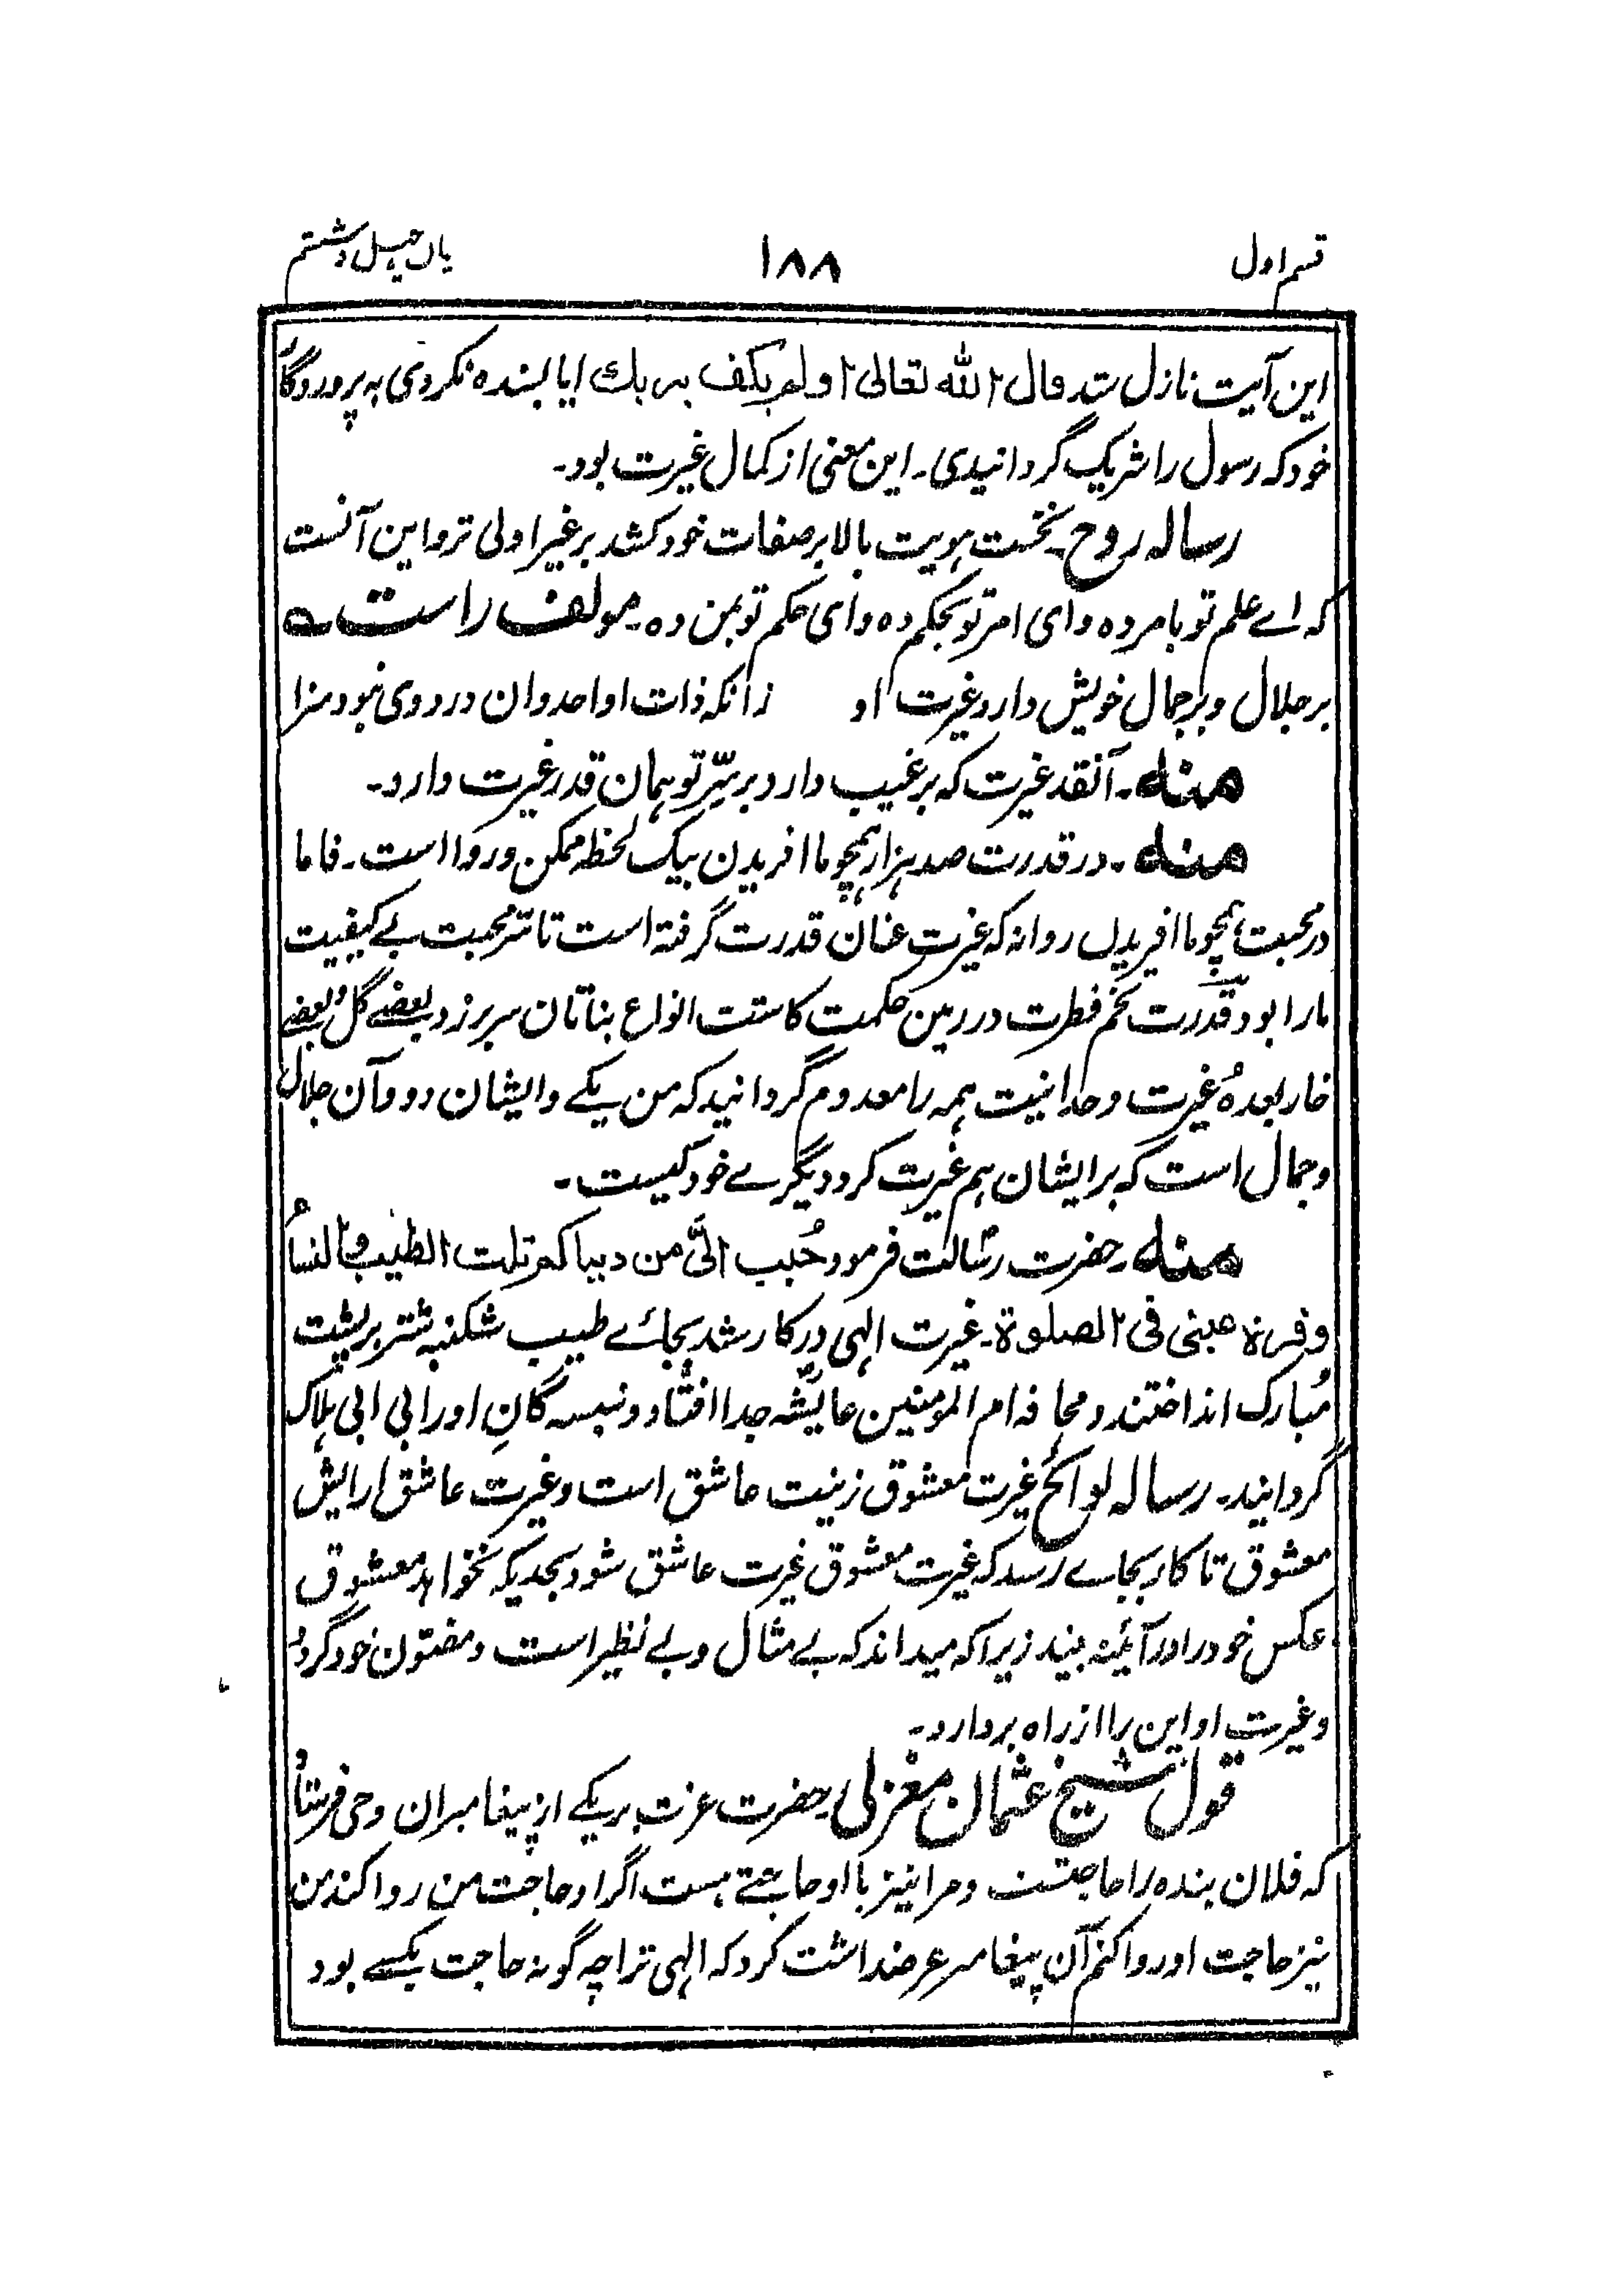 قسم اول ۱۸۸ باب چهل و هشتم
این آیت نازل شد قال الله تعالی اولم یکف بربك ایا بسنده نکردی به پروردگار
خود که رسول را شریک گردانیدی۔ این معنی از کمال غیرت بود۔
رساله روح۔ نخست هویت بالا بر صفات خود کشد بر غیر اولی تر و این آنست
که اے علم تو با مر ده و ای امر تو بحکم ده و ای حکم تو بمن ده۔ مولف راست ـه
بر جلال و بر جمال خویش دارد غیرت او زانکه ذات او احد وان در دوی نبود سزا
منه۔ آنقدر غیرت که بر غیب دارد بر سِرّ تو همان قدر غیرت دارد۔
منه۔ در قدرت صد هزار همچو ما افریدن بیک لحظه ممکن و روا است۔ فاما
در محبت همچو ما افریدن روا نه که غیرت عنان قدرت گرفته است تا سّر محبت بے کیفیت
مارا بود قدرت تخم فطرت در زمین حکمت کاشت انواع بناتان سر برزد بعضے گل و بعضے
خار بعدهٗ غیرت وحدانیت همه را معدوم گردانید که من یکے و ایشان دو و آن جلال
و جمال است که بر ایشان هم غیرت کرد دیگرے خود کیست۔
منه۔ حضرت رسالتؐ فرمود حُبب الیَّ من دنیاکم ثلث الطیب و النساُء
و قرة عینی فی الصلوة۔ غیرت الٰهی در کار شد بجاۓ طیب شکنبه شتر بر پشت
مُبارک انداختند و محافه ام المومنین عایشهؓ جدا افتاد و نبسه گانِ او را بی ابی هلاک
گردانید۔ رساله لوائح غیرت معشوق زینت عاشق است و غیرت عاشق ارایش
معشوق تا کار بجاے رسد که غیرت معشوق غیرت عاشق شود بحدیکه نخواهد معشوق
عکس خود را در آئینه بیند زیرا که میداند که بے مثال و بے نظیر است و مفتون خود گردد
و غیرت او این را از راه بردارد۔
قول شیخ عثمان مغربی۔ حضرت عزت بر یکے از پیغامبران وحی فرستاد
که فلان بنده را حاجتست و مرا نیز با او حاجتے هست اگر او حاجت من روا کند من
نیز حاجت او روا کنم آن پیغامبر عرضداشت کرد که الٰهی ترا چه گونه حاجت بکسے بود